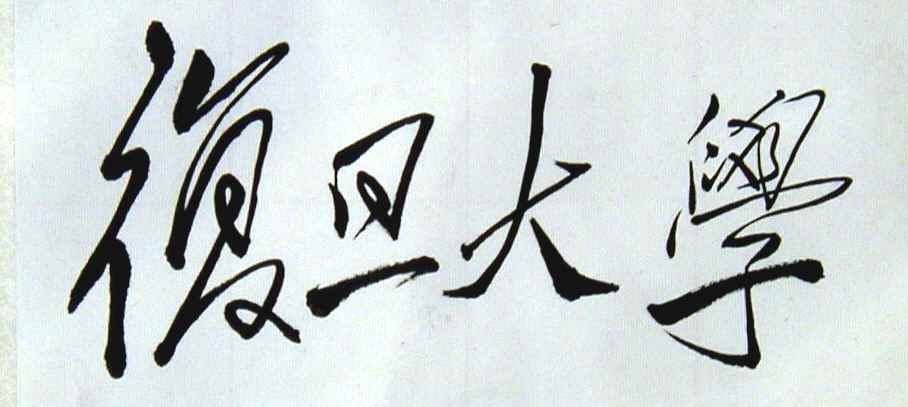 復旦大學